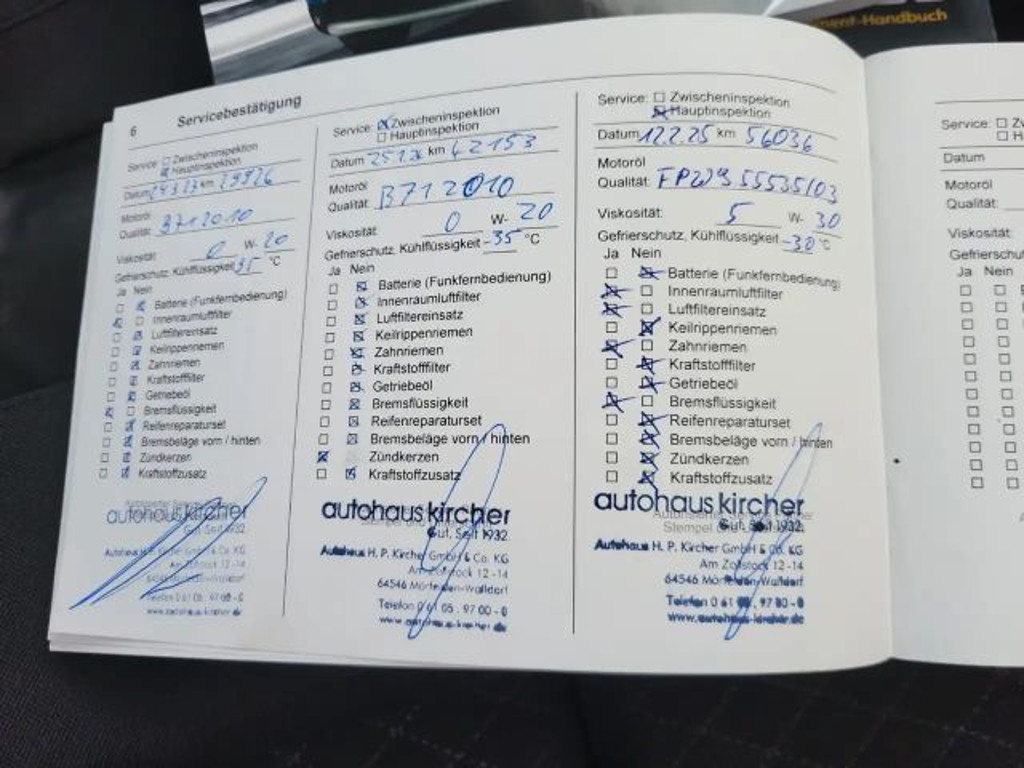 ment-Handbuch
6 Servicebestätigung
Service: Zwischeninspektion
Hauptinspektion
Datum km
Motoröl
Qualität: B712010
Viskosität: 0 W- 20
Gefrierschutz, Kühlflüssigkeit 35 °C
Ja Nein
Batterie (Funkfernbedienung)
Innenraumluftfilter
Luftfiltereinsatz
Keilrippenriemen
Zahnriemen
Kraftstofffilter
Getriebeöl
Bremsflüssigkeit
Reifenreparaturset
Bremsbeläge vorn / hinten
Zündkerzen
Kraftstoffzusatz
autohaus kircher
Gut. Seit 1932.
Autohaus H. P. Kircher GmbH & Co. KG
Am Zollstock 12-14
64546 Mörfelden-Walldorf
Telefon 0 61 05 . 97 00 - 0
www.autohaus-kircher.de
Service: Zwischeninspektion
Hauptinspektion
Datum km 42153
Motoröl
Qualität: B712010
Viskosität: 0 W- 20
Gefrierschutz, Kühlflüssigkeit -35 °C
Ja Nein
Batterie (Funkfernbedienung)
Innenraumluftfilter
Luftfiltereinsatz
Keilrippenriemen
Zahnriemen
Kraftstofffilter
Getriebeöl
Bremsflüssigkeit
Reifenreparaturset
Bremsbeläge vorn / hinten
Zündkerzen
Kraftstoffzusatz
autohaus kircher
Gut. Seit 1932.
Autohaus H. P. Kircher GmbH & Co. KG
Am Zollstock 12-14
64546 Mörfelden-Walldorf
Telefon 0 61 05 . 97 00 - 0
www.autohaus-kircher.de
Service: Zwischeninspektion
Hauptinspektion
Datum 12.2.25 km 56036
Motoröl
Qualität: 55535/03
Viskosität: 5 W- 30
Gefrierschutz, Kühlflüssigkeit -30 °C
Ja Nein
Batterie (Funkfernbedienung)
Innenraumluftfilter
Luftfiltereinsatz
Keilrippenriemen
Zahnriemen
Kraftstofffilter
Getriebeöl
Bremsflüssigkeit
Reifenreparaturset
Bremsbeläge vorn / hinten
Zündkerzen
Kraftstoffzusatz
autohaus kircher
Stempel
Gut. Seit 1932.
Autohaus H. P. Kircher GmbH & Co. KG
Am Zollstock 12-14
64546 Mörfelden-Walldorf
Telefon 0 61 05 . 97 00 - 0
www.autohaus-kircher.de
Service: Zw
H
Datum
Motoröl
Qualität:
Viskosität:
Gefriersch
Ja Nein